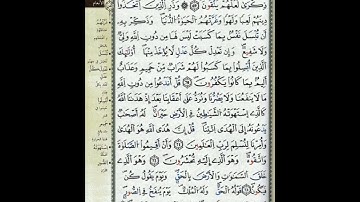 ذِكْرَىٰ لَعَلَّهُمْ يَتَّقُونَ ٦٩ وَذَرِ ٱلَّذِينَ ٱتَّخَذُوا۟
دِينَهُمْ لَعِبًا وَلَهْوًا وَغَرَّتْهُمُ ٱلْحَيَوٰةُ ٱلدُّنْيَا وَذَكِّرْ بِهِۦٓ
أَن تُبْسَلَ نَفْسٌۢ بِمَا كَسَبَتْ لَيْسَ لَهَا مِن دُونِ ٱللَّهِ وَلِىٌّ
وَلَا شَفِيعٌ وَإِن تَعْدِلْ كُلَّ عَدْلٍ لَّا يُؤْخَذْ مِنْهَآ أُو۟لَٰٓئِكَ
ٱلَّذِينَ أُبْسِلُوا۟ بِمَا كَسَبُوا۟ لَهُمْ شَرَابٌ مِّنْ حَمِيمٍ وَعَذَابٌ
أَلِيمٌۢ بِمَا كَانُوا۟ يَكْفُرُونَ ٧٠ قُلْ أَنَدْعُوا۟ مِن دُونِ ٱللَّهِ
مَا لَا يَنفَعُنَا وَلَا يَضُرُّنَا وَنُرَدُّ عَلَىٰٓ أَعْقَابِنَا بَعْدَ إِذْ هَدَىٰنَا ٱللَّهُ
كَٱلَّذِى ٱسْتَهْوَتْهُ ٱلشَّيَٰطِينُ فِى ٱلْأَرْضِ حَيْرَانَ لَهُۥٓ أَصْحَٰبٌ
يَدْعُونَهُۥٓ إِلَى ٱلْهُدَى ٱئْتِنَا قُلْ إِنَّ هُدَى ٱللَّهِ هُوَ ٱلْهُدَىٰ
وَأُمِرْنَا لِنُسْلِمَ لِرَبِّ ٱلْعَٰلَمِينَ ٧١ وَأَنْ أَقِيمُوا۟ ٱلصَّلَوٰةَ
وَٱتَّقُوهُ وَهُوَ ٱلَّذِىٓ إِلَيْهِ تُحْشَرُونَ ٧٢ وَهُوَ ٱلَّذِى
خَلَقَ ٱلسَّمَٰوَٰتِ وَٱلْأَرْضَ بِٱلْحَقِّ وَيَوْمَ يَقُولُ كُن
فَيَكُونُ قَوْلُهُ ٱلْحَقُّ وَلَهُ ٱلْمُلْكُ يَوْمَ يُنفَخُ فِى ٱلصُّورِ